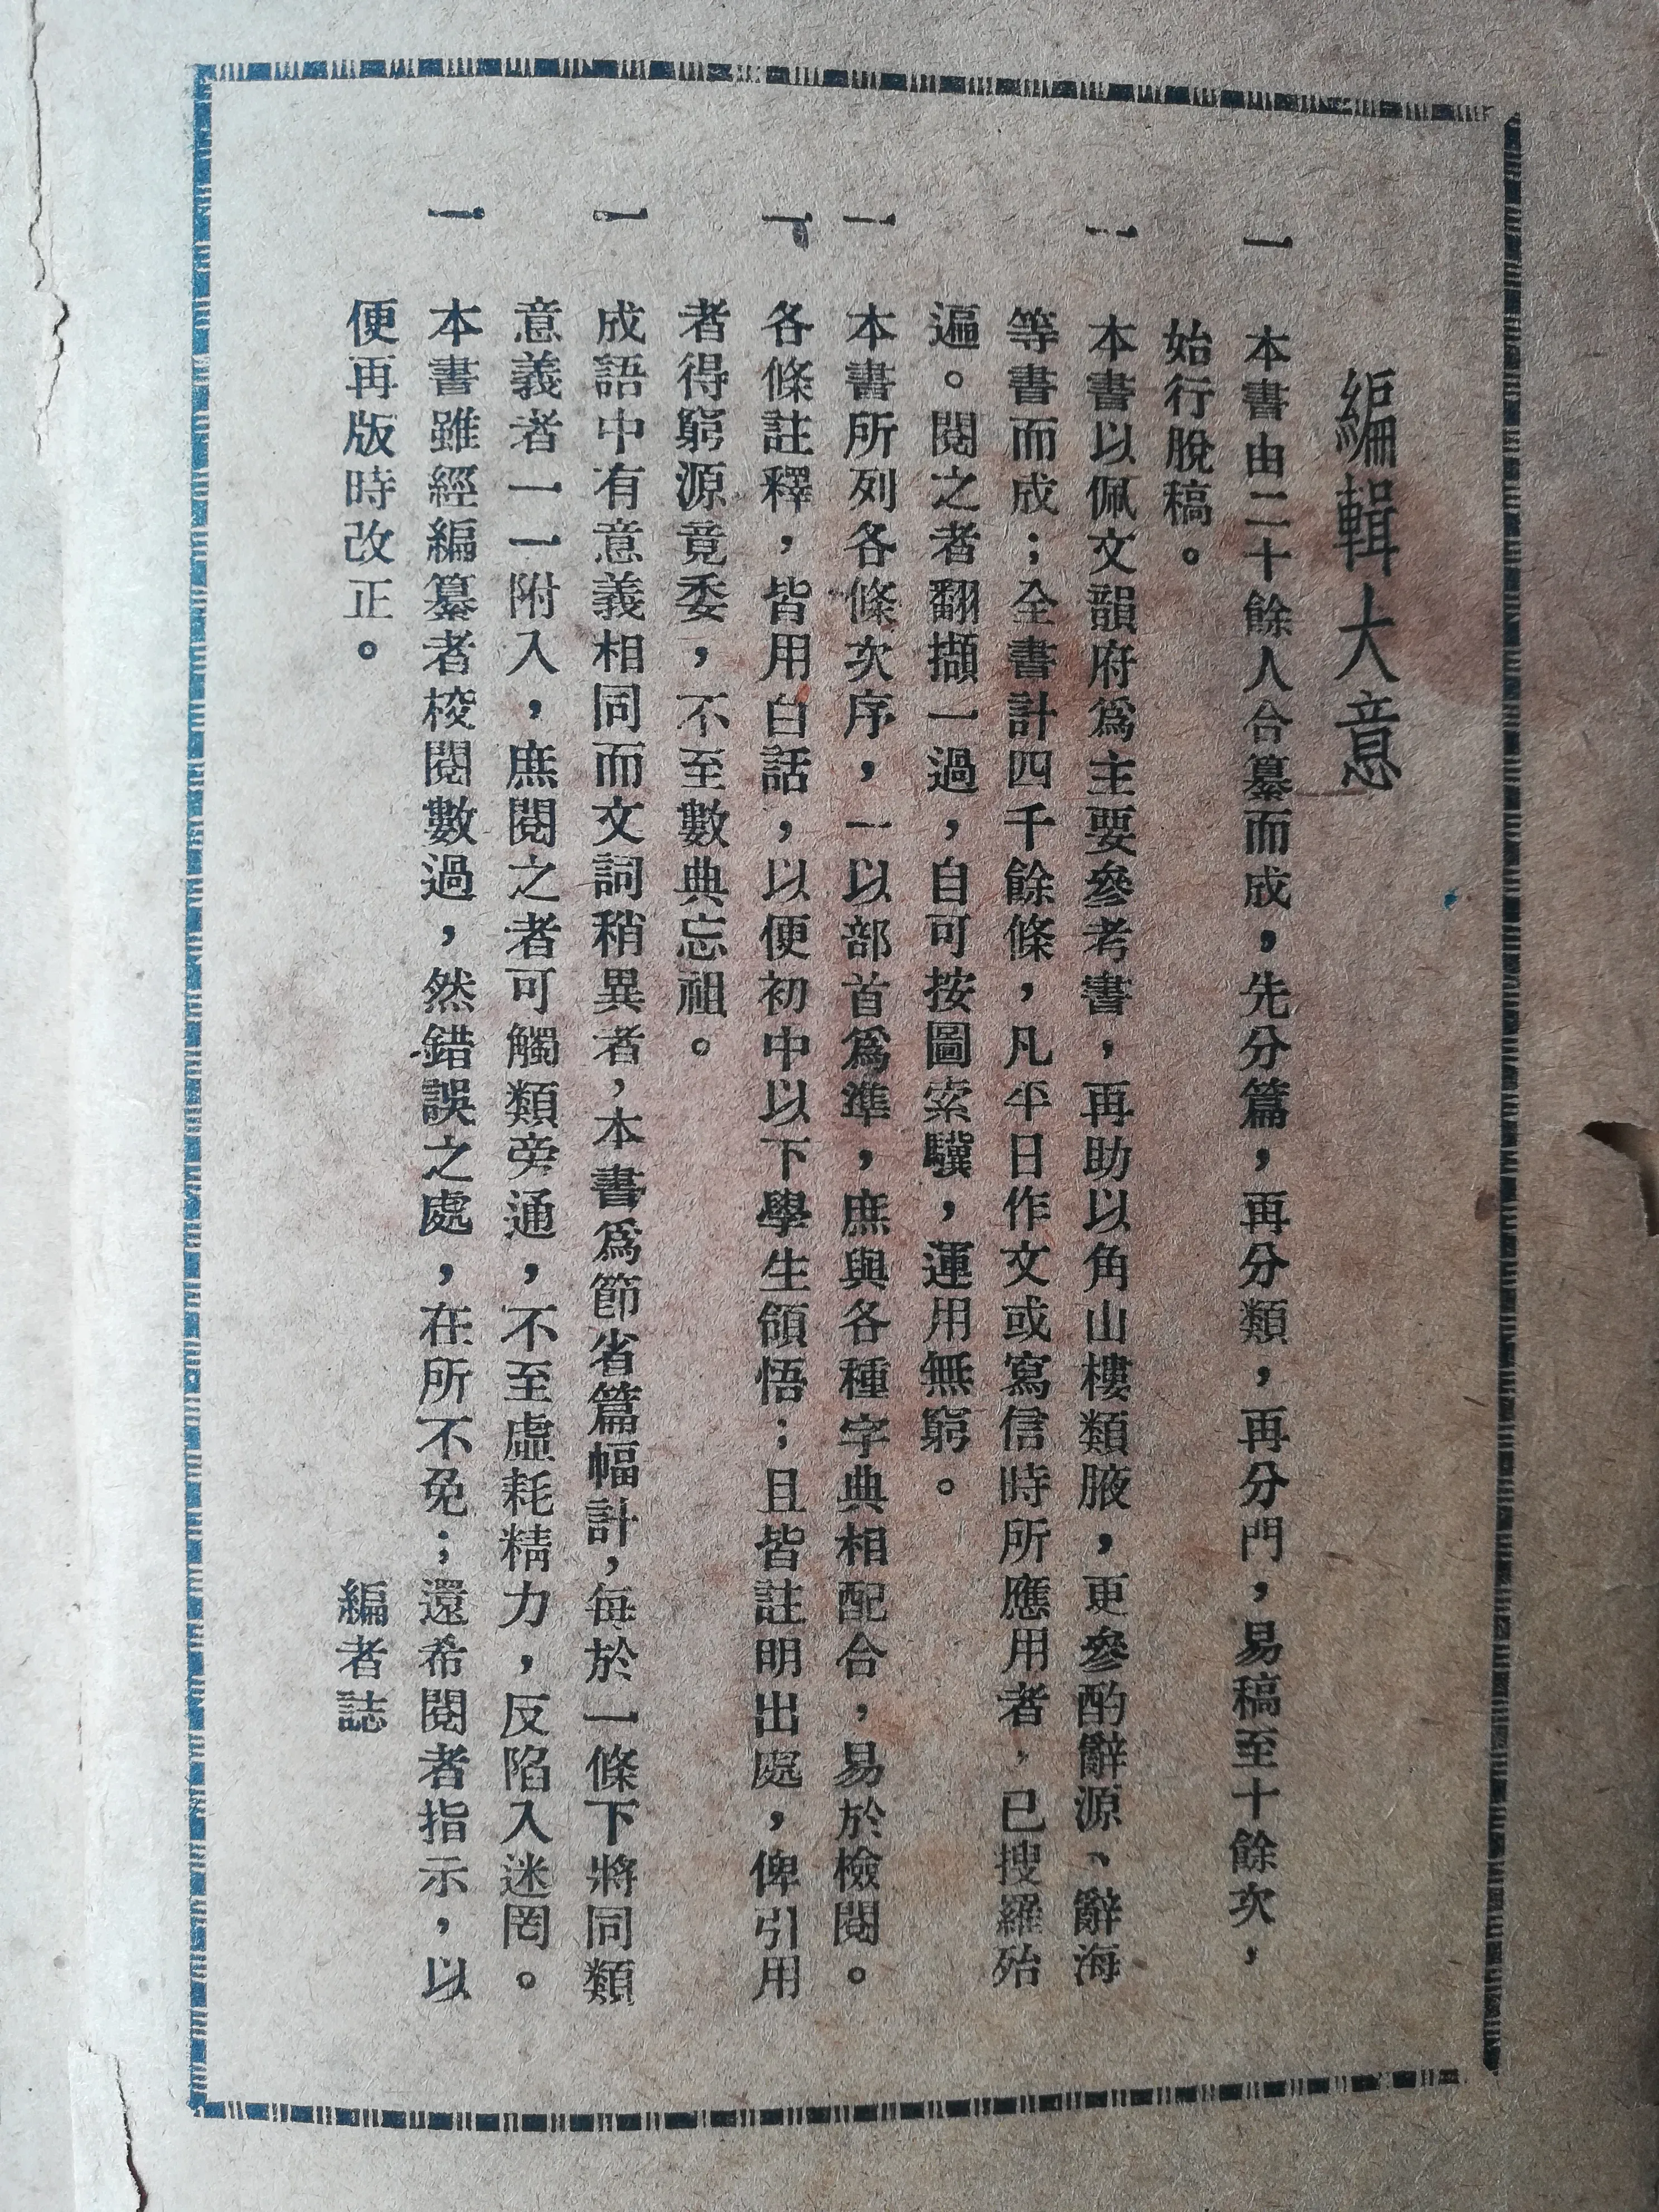 編輯大意
一　本書由二十餘人合纂而成，先分篇，再分類，再分門，易稿至十餘次，
始行脫稿。
一　本書以佩文韻府爲主要參考書，再助以角山樓類腋，更參酌辭源、辭海
等書而成；全書計四千餘條，凡平日作文或寫信時所應用者，已搜羅殆
遍。閱之者翻擷一過，自可按圖索驥，運用無窮。
一　本書所列各條次序，一以部首爲準，庶與各種字典相配合，易於檢閱。
一　各條註釋，皆用白話，以便初中以下學生領悟；且皆註明出處，俾引用
者得窮源竟委，不至數典忘祖。
一　成語中有意義相同而文詞稍異者，本書爲節省篇幅計，每於一條下將同類
意義者一一附入，庶閱之者可觸類旁通，不至虛耗精力，反陷入迷罔。
一　本書雖經編纂者校閱數過，然錯誤之處，在所不免；還希閱者指示，以
便再版時改正。
編者誌